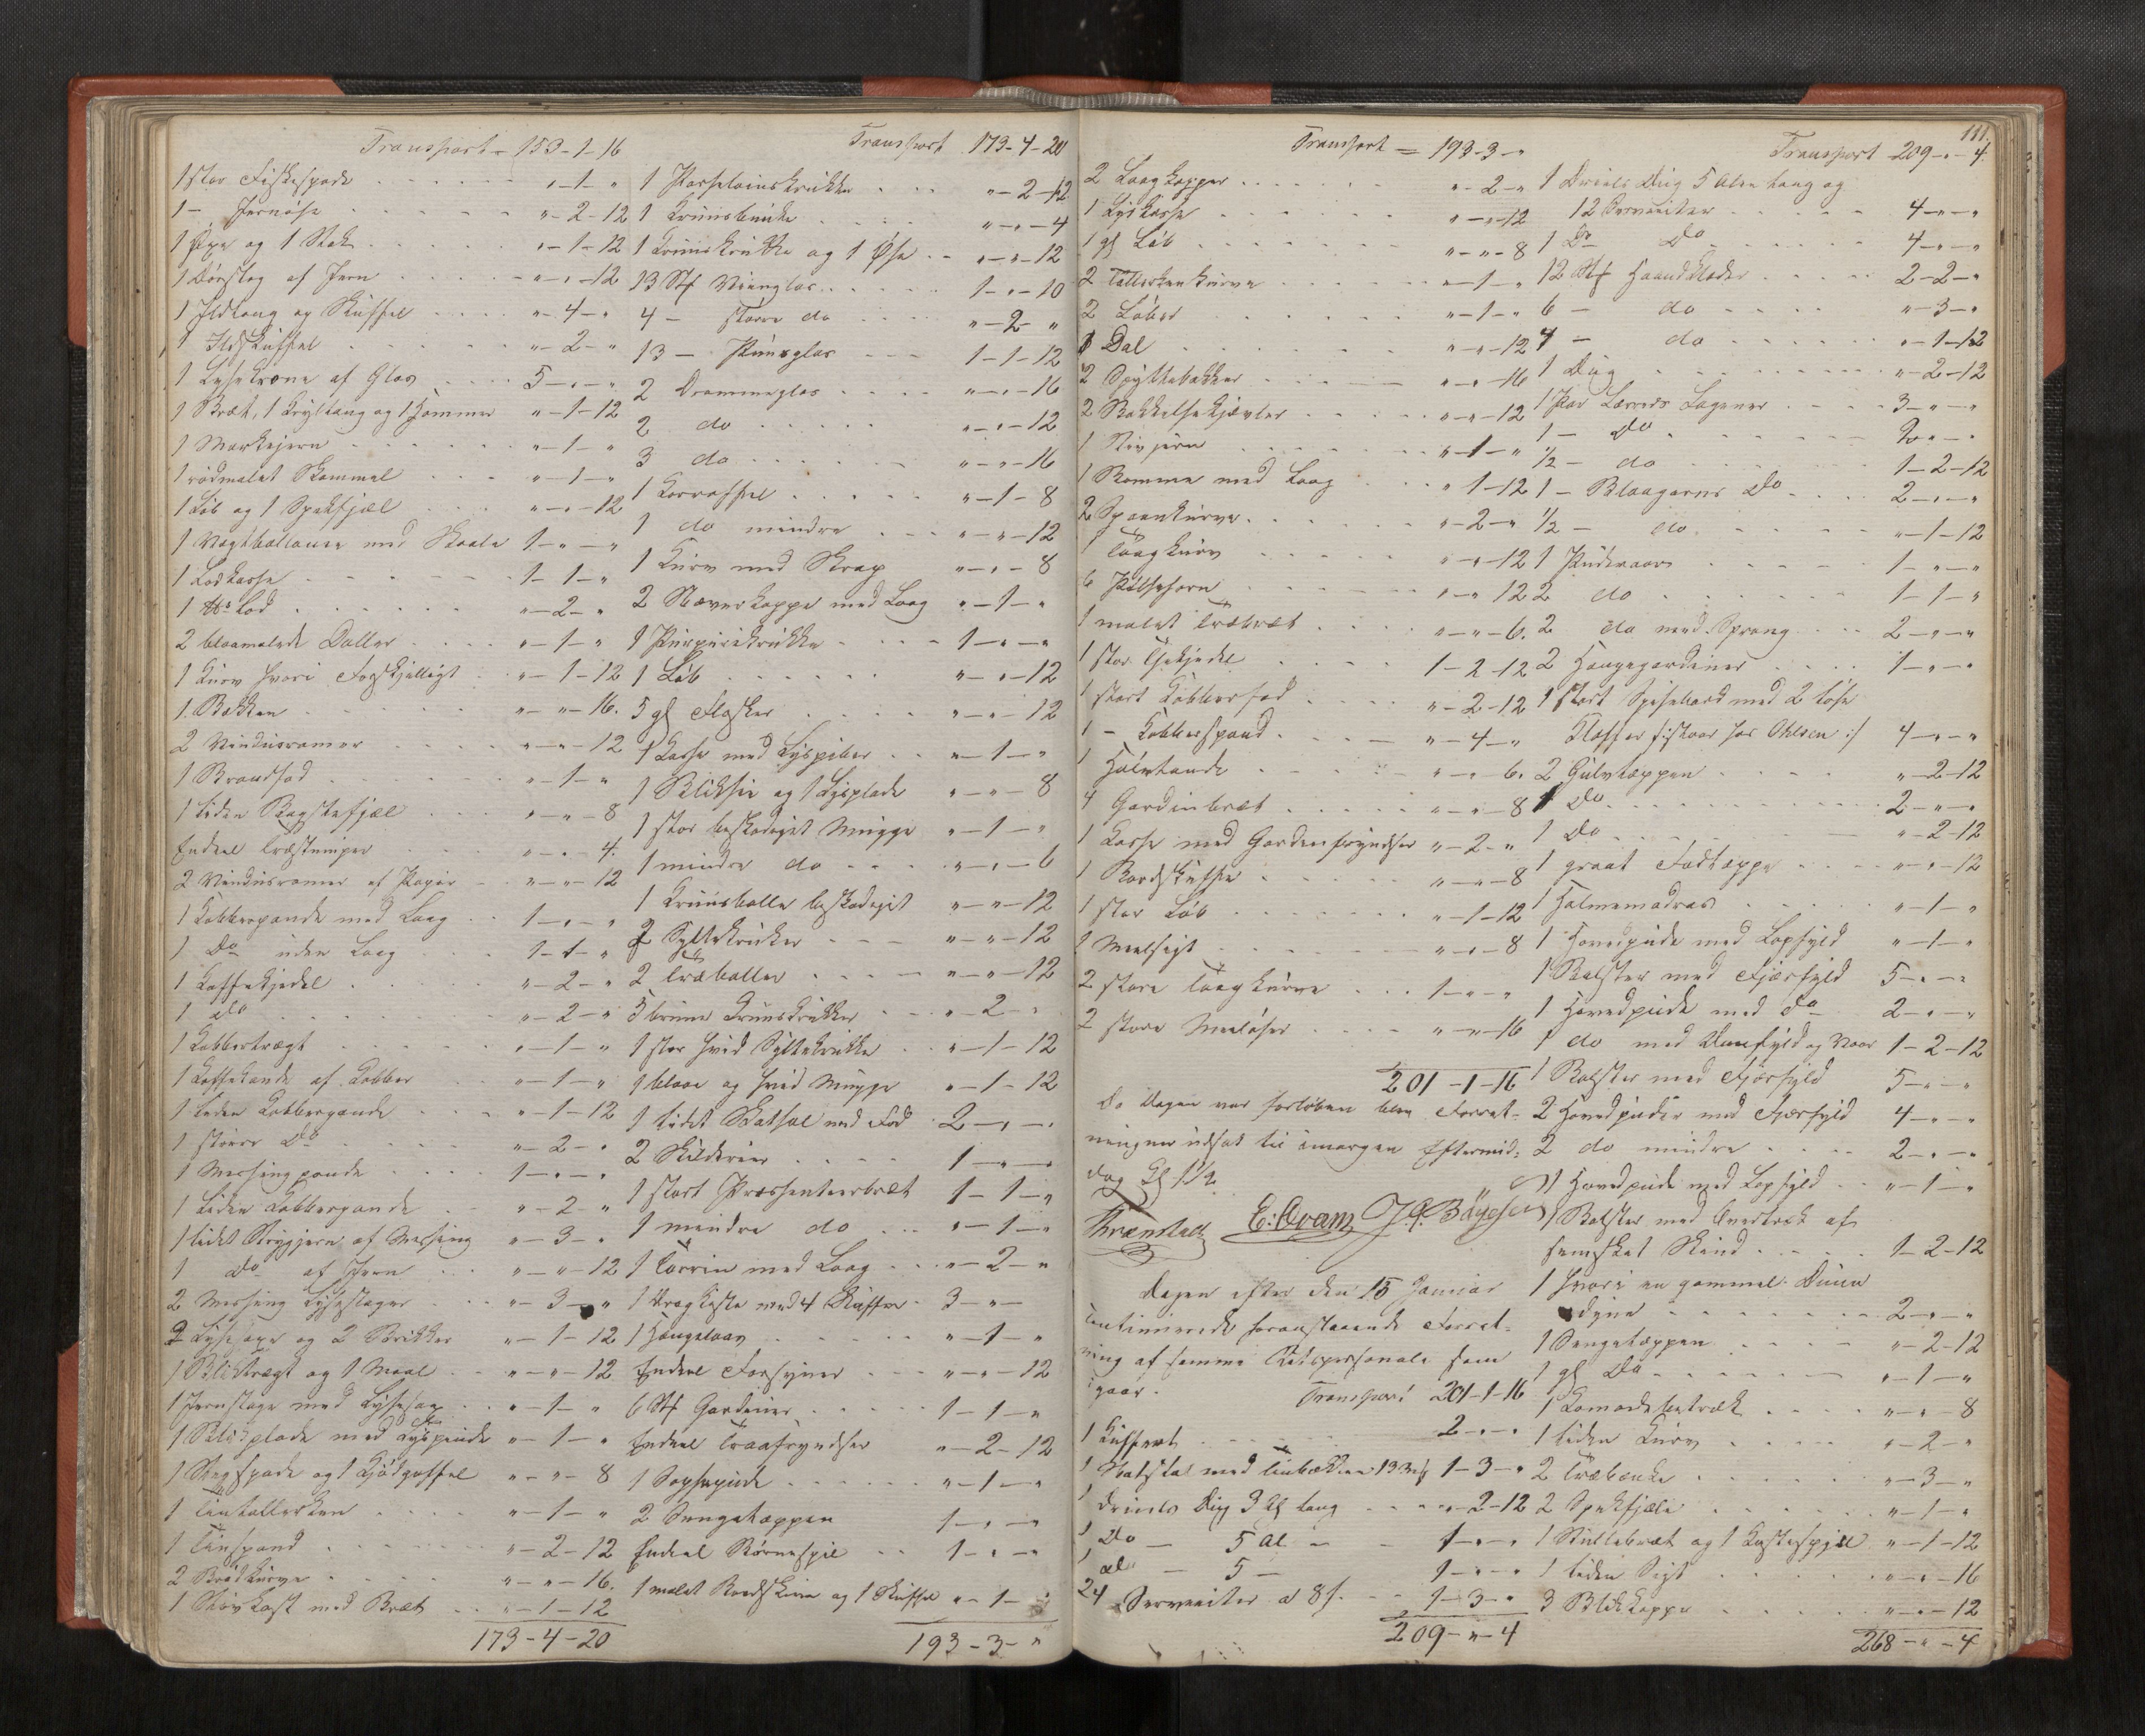 Transport - 153-1-16
1 stor Fiskespade . . . . " - 1 - "
1 - Jernøse . . . . " - 2 - 12
1 Øxe og 1 Stok . . . " - 1 - 12
1 Dørslag af Jern . . . " - " - 12
1 Ildtang og Skuffel . . . " - 4 - "
1 Ildskuffel . . . . " - 2 - "
1 Lysekrone af Glas . . . 5 - " - "
1 Bræt, 1 Kryltang og 1 Hammer " - 1 - 12
1 Markejern . . . . " - 1 - "
1 rødmalet Skammel . . . " - 1 - "
1 Løb og 1 Spækfjæl . . . " - " - 12
1 Vægtballance med Skaale 1 - " - "
1 Lodkasse . . . . 1 - 1 - "
1 Lod . . . . " - 2 - "
2 blaamalede Daller . . . " - 1 - "
1 Kurv hvori Forskjelligt . . " - 1 - 12
1 Bækken . . . . " - " - 16.
2 Vinduesramer . . . . " - " - 12
1 Brandfad . . . . " - 1 - "
1 liden Bagstefjæl . . . " - " - 8
Endeel Træstumper . . . " - " - 4.
2 Vinduesramer af Papir - . " - " - 12
1 Kobberpande med Laag . . 1 - " - "
1 Do uden Laag . . . 1 - 1 - "
1 Kaffekjedel . . . . " - 2 - "
1 do . . . . " - 2 - "
1 Kobbertragt . . . . " - 1 - "
1 Kaffekande af Kobber . . " - 1 - "
1 liden Kobberpande . . . " - 1 - 12
1 større Do . . . . " - 2 - "
1 Messingpande . . . . 1 - " - "
1 liden Kobberpande . . . " - 2 - "
1 lidet Strygjern af Messing " - 3 - "
1 Do af Jern . . . " - " - 12
2 Messing Lysestager . . " - 3 - "
2 Lysesaxe og 2 Brikker " - 1 - 12
1 Bliktragt og 1 Maal . . " - " - 12
1 Jernstage med Lysesax . . " - 1 - "
1 Blikplade med " - 1 - "
1 Stegspade og 1 Kjødgaffel " - " - 8
1 Tintallerken . . . . " - 1 - "
1 Tinspand . . . . " - 2 - 12
2 Brødkurve . . . . " - " - 16.
1 Skrivkast med Bræt . . " - 1 - 12
173-4-20
Transport 173-4-20
1 Porselainskrukke . . . " - 2 - 12
1 Kruusbrikke . . . " - " - 4
1 Kruuskrukke og 1 Øse . . " - " - 12
13 Stk Viinglas . . . . 1 - " - 10
4 - større do . . . . " - 2 - "
13 - Puncglas . . . 1 - 1 - 12
2 Dramsglas . . . . " - " - 16
2 do . . . . . " - " - 12
3 do . . . . . " - " - 16
1 Karaffel . . . . . " - 1 - 8
1 do mindre . . . " - " - 12
1 Kurv med Skrap " - " - 8
2 Næverkoppe med Laag " - 1 - "
1 Purpurikrukke . . . 1 - " - "
1 Løb . . . . . " - " - 12
5 gl Flasker . . . . " - " - 12
1 Kasse med Lyspiber . . " - 1 - "
1 Bliksie og 1 Lysplade " - " - 8
1 stor beskadiget Mugge " - 1 - "
1 mindre do . . . " - " - 6
1 Kruusbolle beskadiget " - " - 12
2 Syltekrukker . . . " - " - 12
2 Træboller . . . . " - " - 12
5 brune Kruuskrukker . . " - 2 - "
1 stor hvid Syltekrukke . . " - 1 - 12
1 blaae og hvid Mugge " - 1 - 12
1 lidet Skatol med Fod 2 - " - "
2 Skilderier . . . . 1 - " - "
1 stort Præsenteerbræt 1 - 1 - "
1 mindre do . . " - 1 - "
1 Terrin med Laag . . . " - 2 - "
1 Dragkiste med 4 Skuffer . 3 - " -
1 Hængelaas . . . . " - 1 - "
Endeel Forsyner . . . " - " - 12
6 Stk Gardiner . . . . 1 - 1 - "
Endeel Traafryndser " - 2 - 12
1 Sophapude . . . . " - 1 - "
2 Sengetæppen 1 - " - "
Endeel Børnespil . . 1 - " - "
1 malet Bordskive og 1 Skuffe " - 1 -
193-3- "
Transport = 193-3- "
2 Laagkopper . . . . " - 2 - "
1 Lyskasse . . . . " - " - 12
1 gl Løb . . . . " - " - 8
2 Tallerkenkurve . . . " - 1 - "
2 Løber . . . . " - 1 - "
1 Dal . . . . " - " - 12
2 Spyttebakker . . . " - " - 16
2 Bakkelsekjævler . . . " - " - 12
1 Rivjern . . . . " - 1 - "
1 Bomme med Laag . . . " 1 - 12
2 Spaankurve . . . . " - 2 - "
1 Taagkurv . . . . " - " - 12
6 Pølsehorn . . . . " - " 12
1 malet Træbræt . . . " - " - 6.
1 stor Thekjedel . . . 1 - 2 - 12
1 stort Kobberfad . . . " - 2 - 12
1 - Kobberspand . . . " - 4 - "
1 Halvtønde . . . . " - " 6.
4 Gardinbræt . . . . " - " - 8
1 Kasse med Gardinfryndser " - 2 - "
1 Bordskuffe . . . . " - " - 8
1 stor Løb . . . . " - 1 - 12
1 Meelsigt . . . . " - " - 8
2 store Taagkurve . . . 1 - " - "
2 store Meeløser . . . " - " - 16
201 - 1 - 16
Da Dagen var forløben blev Forret-
ningen udsat til imorgen Eftermid-
dag Kl 1½.
E: Qvam J. F. Bøgesen
Dagen efter den 15 Januar
continuerede foranstaaende Forret-
ning af samme Retspersonale som
igaar.
Transport 201-1-16
1 Kuffert . . . . 2 - " - "
1 Natstol med Tinbækken 1 - 3 - "
1 Dreiels Dug 3 Al lang . . " - 2 - 12
1 Do - 5 Al - - 1 - " - "
1 do - 5 - 1 - " - "
24 Servietter a 8 s. . . 1 - 3 - "
209 - " - 4
111.
Transport 209 - " - 4.
1 Dreiels Dug 5 Alen lang og
12 Servietter . . . . 4 - " - "
1 Do Do . . . . 4 - " - "
12 Stk Haandklæder . . . 2 - 2 - "
6 - do . . . . " - 3 - "
4 - do . . . . " - 1 - 12
1 Dug . . . . . " - 2 - 12
1 Par Lærreds Lagener . . . 3 - " - "
1 - Do . . . . 2 - " - "
½ - do . . . . 1 - 2 - 12
1 - Blaagarns Do . . . 2 - " - "
½ - do . . . . " - 1 - 12
1 Pudevaar . . . . 1 - " - "
2 do . . . . 1 - 1 - "
2 do med Sprang . . 2 - " - "
2 Hængegardiner . . . 1 - " - "
1 stort Spisebord med 2 løse
Klaffer /: staar hos Ohlsen :/ 4 - " - "
2 Gulvtæppen . . . . " - 2 - 12
1 Do . . . . 2 - " - "
1 Do . . . . " - 2 - 12
1 graat Fodtæppe . . . " - " - 12
1 Halmmadras . . . . " - 1 - "
1 Hovedpude med Lapfyld " - 1 - "
1 Bolster med Fjærfyld 5 - " - "
1 Hovedpude med do 2 - " - "
1 do med Duunfyld og Vaar 1 - 2 - 12
1 Bolster med Fjærfyld 5 - " - "
2 Hovedpuder med Fjærfyld 4 - " - "
2 do mindre . . . 2 - " - "
1 Hovedpude med Lapfyld . . " - 1 - "
1 Bolster med Overtræk af
semsket Skind . . . . 1 - 2 - 12
1 hvori en gammel Duun
dyne . . . . 2 - " - "
1 Sengetæppen . . . . " - 2 - 12
1 gl Do . . . . " - 1 - "
1 Komodebetræk . . . " - " - 8
1 liden Kurv . . . . " - 2 - "
2 Træbænke . . . . " - 3 - "
2 Spækfjæle . . . . " - 1 - "
1 Rullebræt og 1 Kastespjæl " - 1 - 12
1 liden Sigt . . . . " - " - 16
3 Blikkoppe . . . . " - " - 12
268 - " - 4